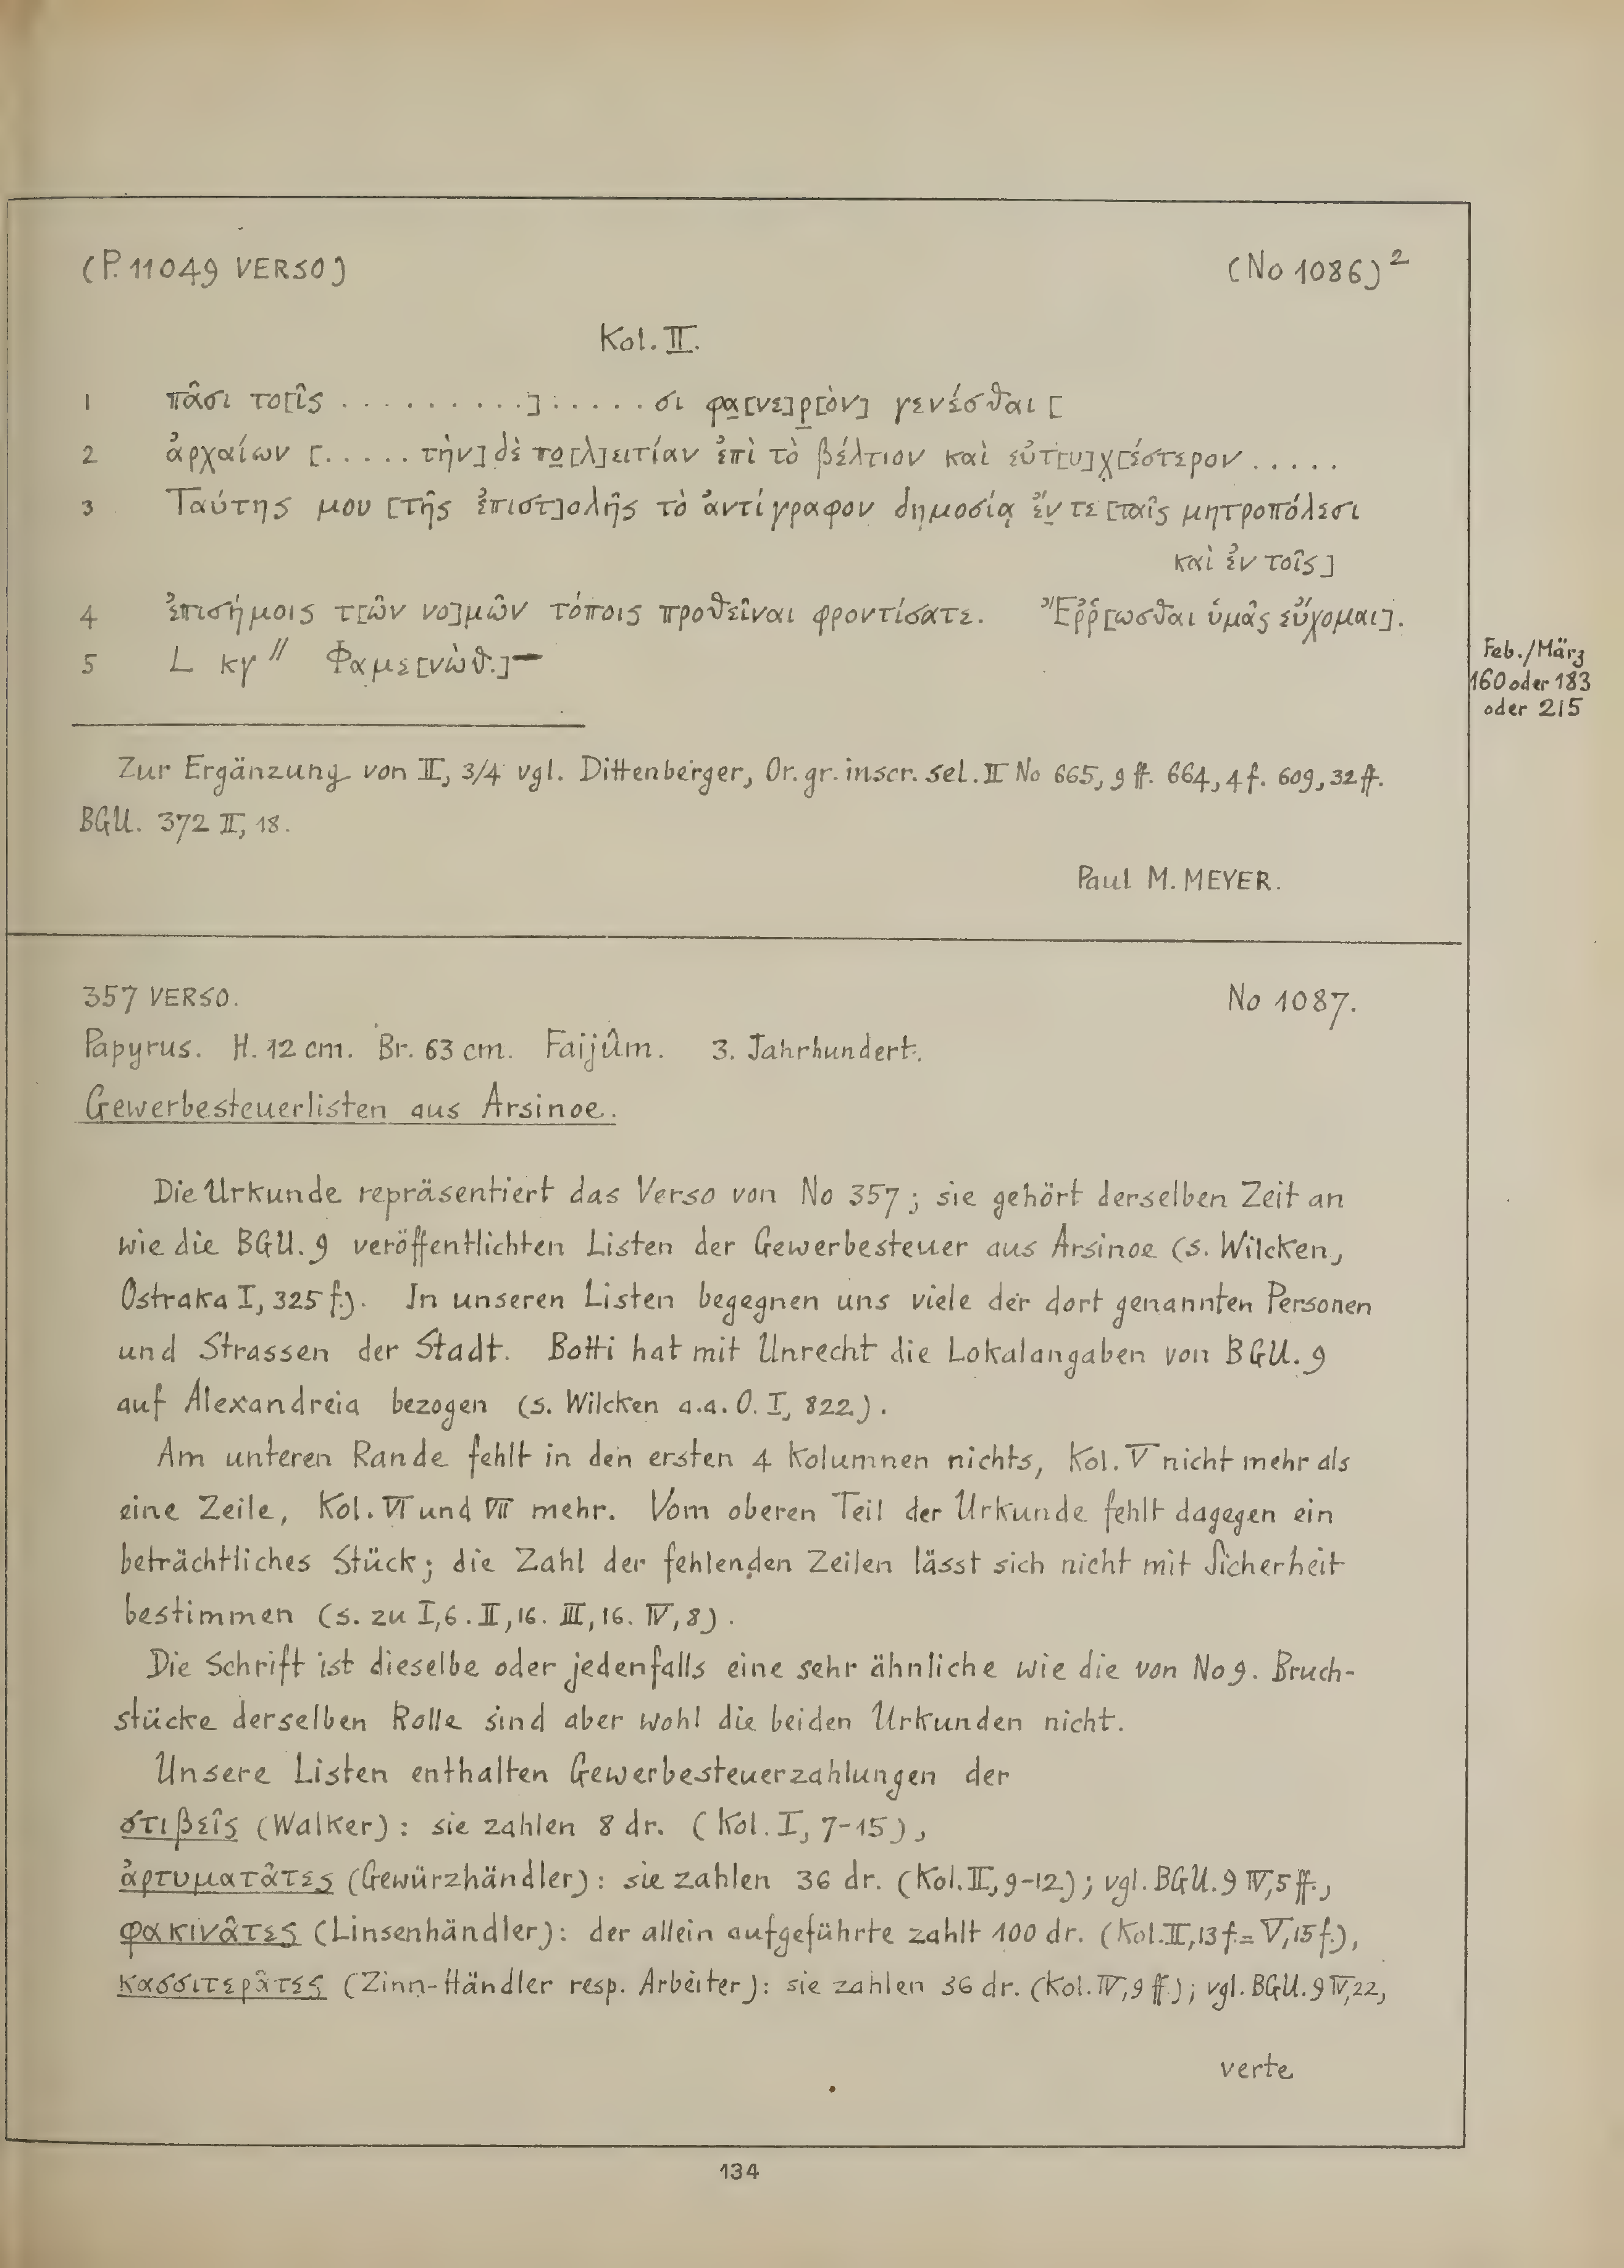 (P. 11049 VERSO)
(No 1086)²
Kol. II.
1 πᾶσι το[ῖς . . . . . . . . . .] . . . . . . σι φα̲[νε]ρ̲[ὸν] γενέσθαι [
2 ἀρχαίων [. . . . . τὴν] δὲ πο̲[λ]ειτίαν ἐπὶ τὸ βέλτιον καὶ εὐτ[υ]χ̣[έστερον . . . . .
3 Ταύτης μου [τῆς ἐπιστ]ολῆς τὸ ἀντίγραφον δημοσίᾳ ἔν̲ τε [ταῖς μητροπόλεσι
καὶ ἐν τοῖς]
4 ἐπισήμοις τ[ῶν νο]μῶν τόποις προθεῖναι φροντίσατε. Ἔῤῥ[ωσθαι ὑμᾶς εὔχομαι].
5 L κγ // Φαμε[νὼθ.]—
Feb./März
160 oder 183
oder 215
Zur Ergänzung von II, 3/4 vgl. Dittenberger, Or. gr. inscr. sel. II No 665, 9 ff. 664, 4 f. 609, 32 ff.
BGU. 372 II, 18.
Paul M. MEYER.
357 VERSO.
No 1087.
Papyrus. H. 12 cm. Br. 63 cm. Faijûm. 3. Jahrhundert.
Gewerbesteuerlisten aus Arsinoe.
Die Urkunde repräsentiert das Verso von No 357; sie gehört derselben Zeit an
wie die BGU. 9 veröffentlichten Listen der Gewerbesteuer aus Arsinoe (s. Wilcken,
Ostraka I, 325 f.). In unseren Listen begegnen uns viele der dort genannten Personen
und Strassen der Stadt. Botti hat mit Unrecht die Lokalangaben von BGU. 9
auf Alexandreia bezogen (s. Wilcken a.a.O. I, 822).
Am unteren Rande fehlt in den ersten 4 Kolumnen nichts, Kol. V nicht mehr als
eine Zeile, Kol. VI und VII mehr. Vom oberen Teil der Urkunde fehlt dagegen ein
beträchtliches Stück; die Zahl der fehlenden Zeilen lässt sich nicht mit Sicherheit
bestimmen (s. zu I,6. II,16. III,16. IV,8).
Die Schrift ist dieselbe oder jedenfalls eine sehr ähnliche wie die von No 9. Bruch-
stücke derselben Rolle sind aber wohl die beiden Urkunden nicht.
Unsere Listen enthalten Gewerbesteuerzahlungen der
στιβεῖς (Walker): sie zahlen 8 dr. (Kol. I, 7-15),
ἀρτυματᾶτες (Gewürzhändler): sie zahlen 36 dr. (Kol. II, 9-12); vgl. BGU. 9 IV, 5 ff.,
φακινᾶτες (Linsenhändler): der allein aufgeführte zahlt 100 dr. (Kol. II, 13 f. = V, 15 f.),
κασσιτερᾶτες (Zinn-Händler resp. Arbeiter): sie zahlen 36 dr. (Kol. IV, 9 ff.); vgl. BGU. 9 IV, 22,
verte
134